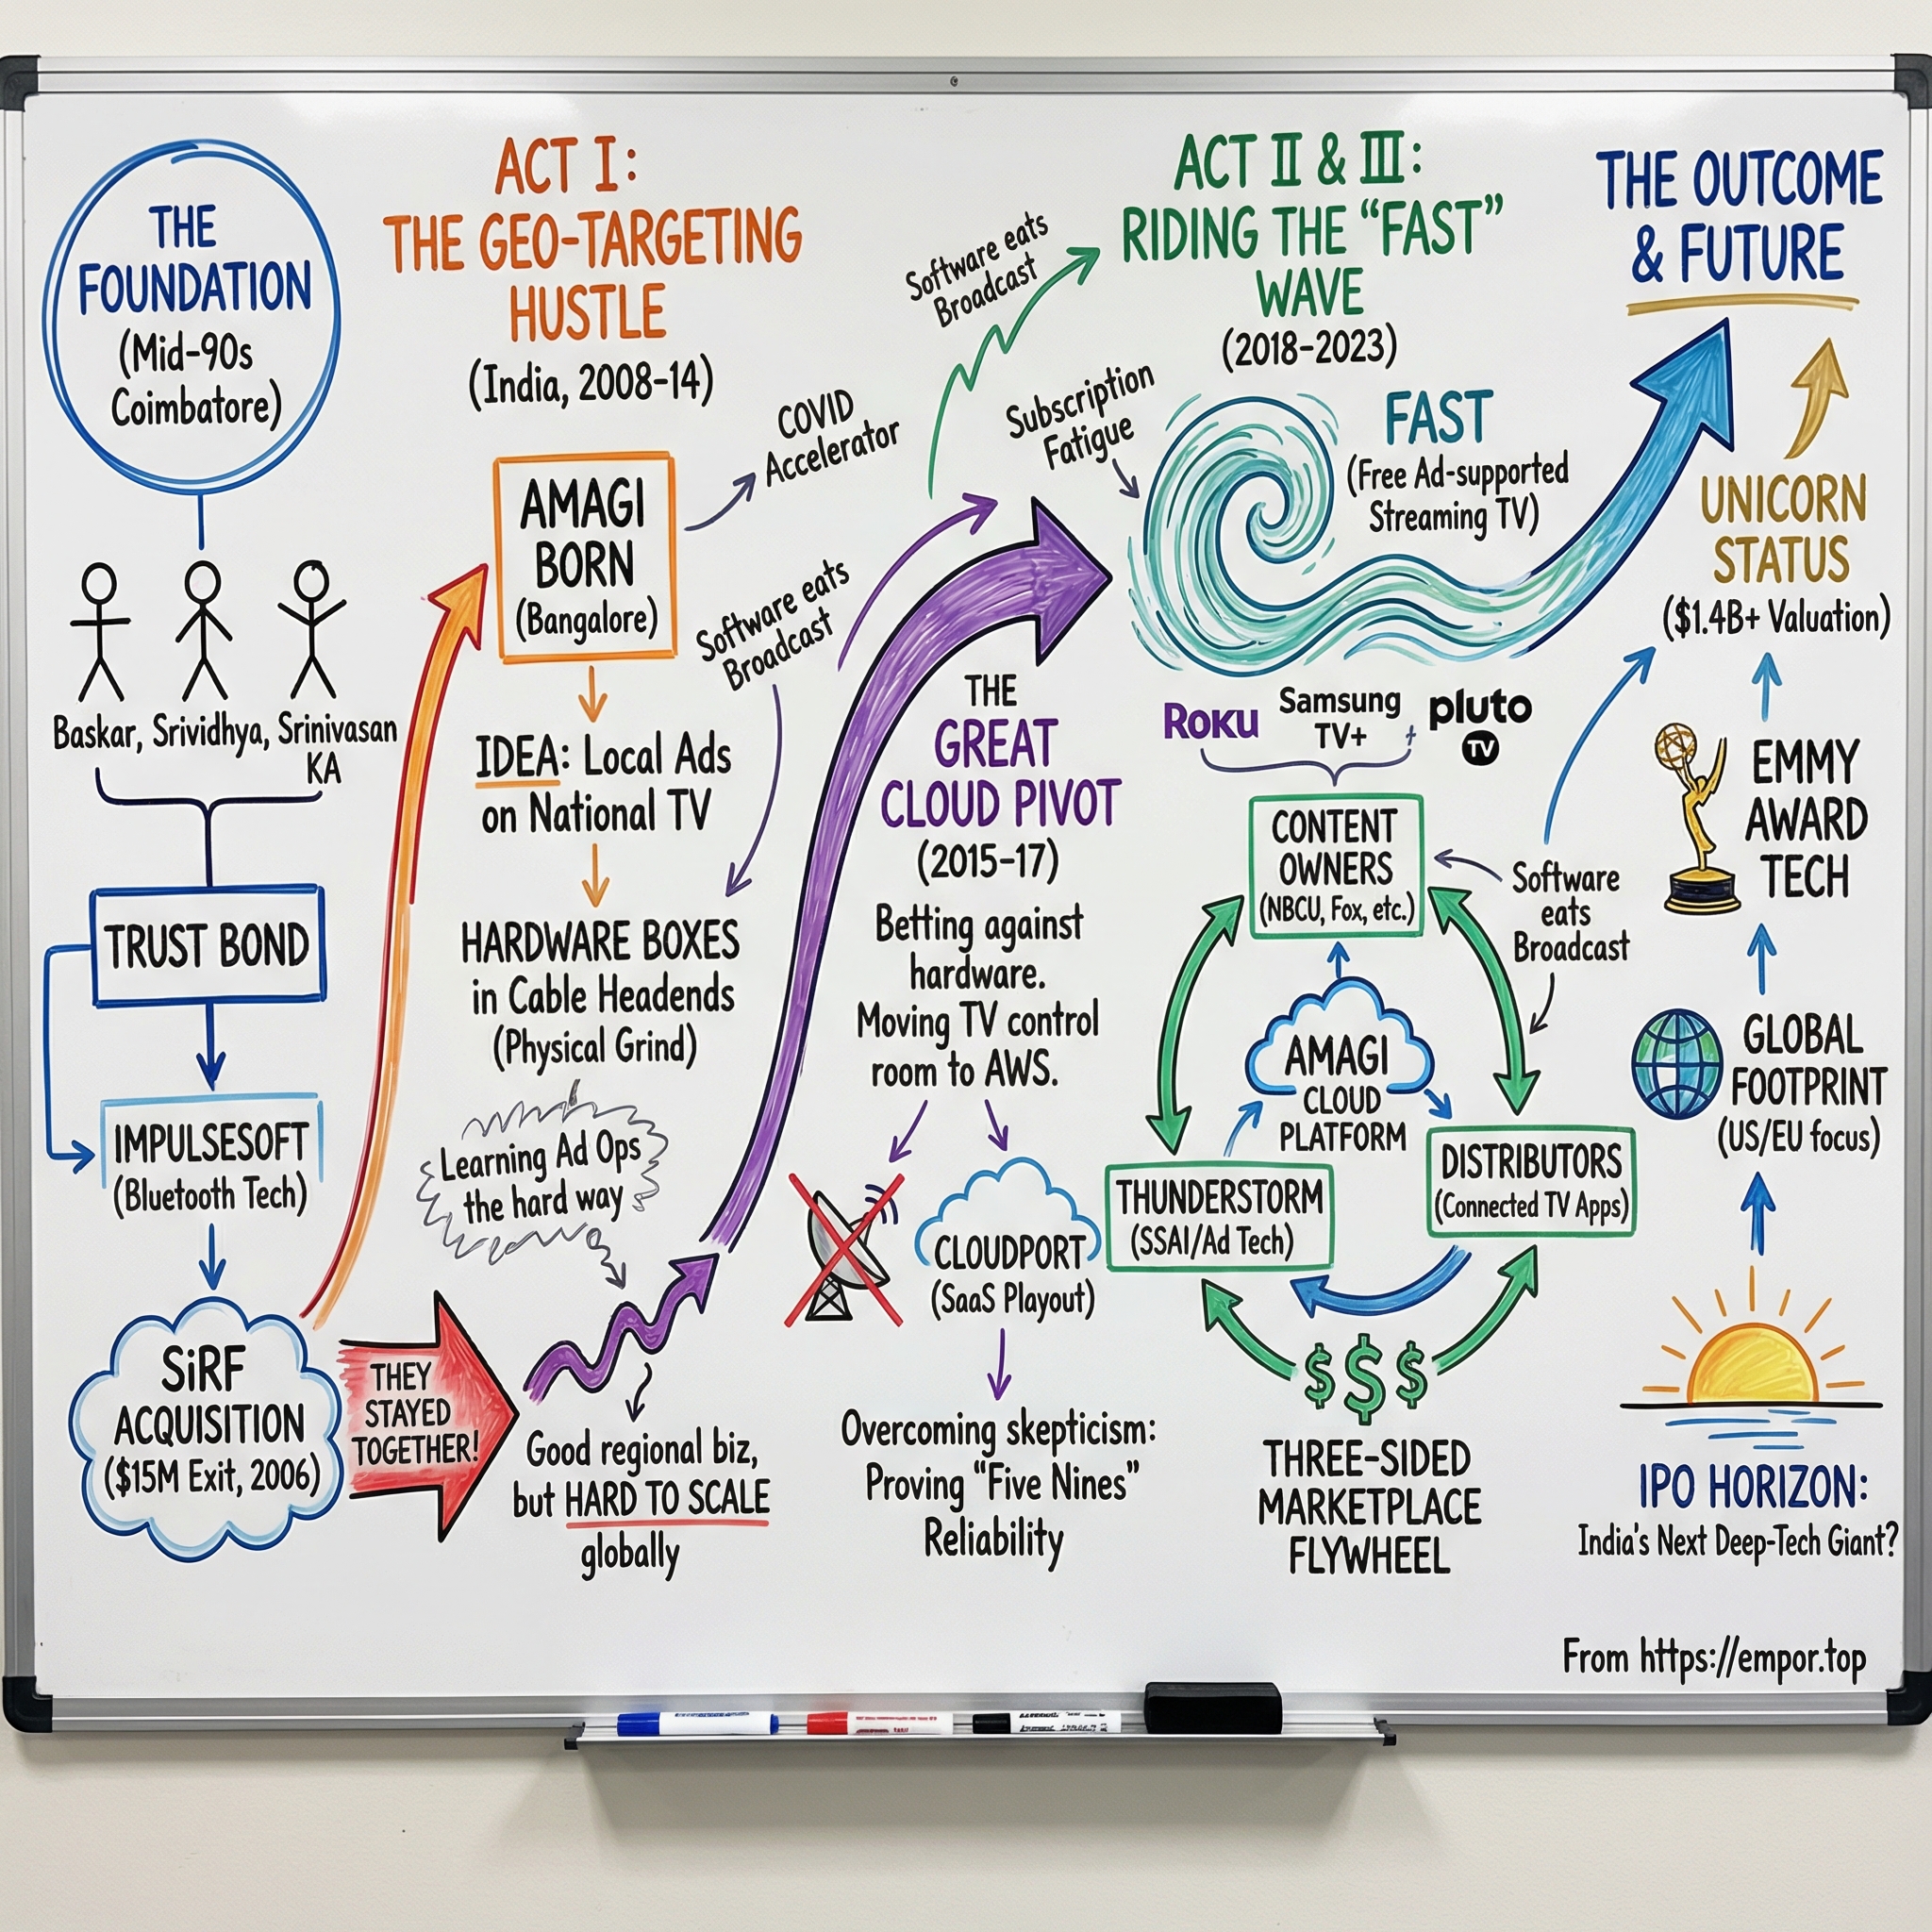 THE
FOUNDATION
(Mid-90s
Coimbatore)
Baskar, Srividhya, Srinivasan
KA
TRUST BOND
IMPULSESOFT
(Bluetooth Tech)
SiRF
ACQUISITION
($15M Exit, 2006)
THEY
STAYED
TOGETHER!
ACT I:
THE GEO-TARGETING
HUSTLE
(India, 2008-14)
AMAGI
BORN
(Bangalore)
COVID
Accelerator
IDEA: Local Ads
on National TV
HARDWARE BOXES
in Cable Headends
(Physical Grind)
Learning Ad Ops
the hard way
Good regional biz,
but HARD TO SCALE
globally
Software eats
Broadcast
Software eats
Broadcast
THE
GREAT
CLOUD PIVOT
(2015-17)
Betting against
hardware.
Moving TV control
room to AWS.
CLOUDPORT
(SaaS Playout)
Overcoming skepticism:
Proving “Five Nines”
Reliability
ACT II & III:
RIDING THE “FAST”
WAVE
(2018-2023)
Subscription
Fatigue
FAST
(Free Ad-supported
Streaming TV)
ROKU
Samsung
TV+
pluto
TV
CONTENT
OWNERS
(NBCU, Fox, etc.)
Software
eats
Broadcast
AMAGI
CLOUD
PLATFORM
THUNDERSTORM
(SSAI/Ad Tech)
DISTRIBUTORS
(Connected TV Apps)
$ $ $
THREE-SIDED
MARKETPLACE
FLYWHEEL
THE OUTCOME
& FUTURE
UNICORN
STATUS
($1.4B+ Valuation)
EMMY
AWARD
TECH
GLOBAL
FOOTPRINT
(US/EU focus)
IPO HORIZON:
India's Next Deep-Tech Giant?
From https://empor.top